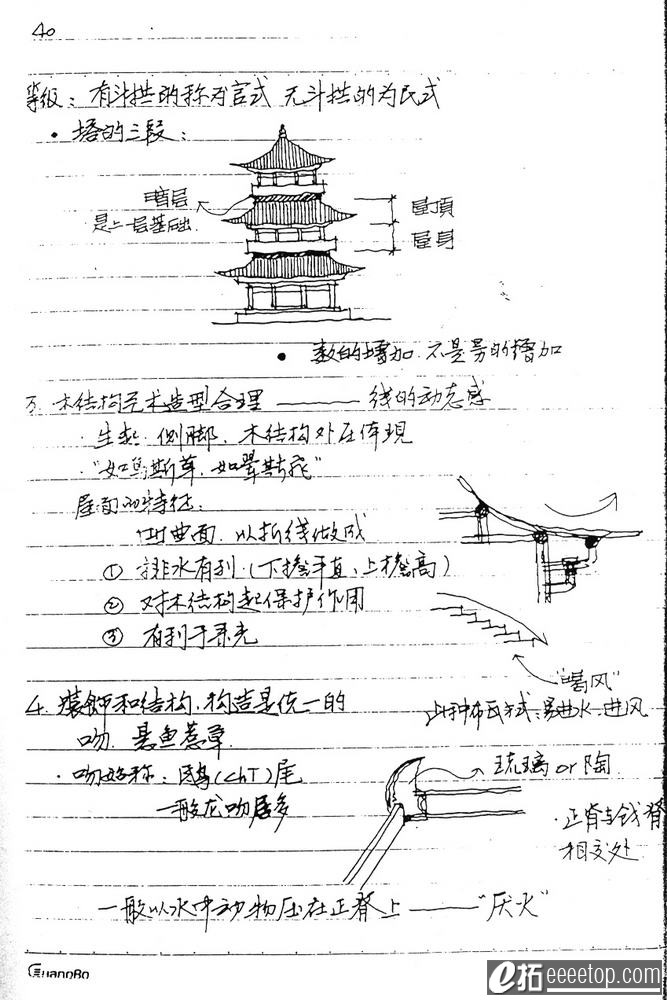 40
等级：有斗拱的称为官式 无斗拱的为民式
· 塔的三段：
暗层
是上一层基础
屋頂
屋身
· 数的增加.不是量的增加
3. 木结构艺术造型合理 —— 线的动态感
· 生起.侧脚.木结构外在体现
· "如鸟斯革，如翚斯飞"
屋面的特征：
凹曲面.以折线做成
① 排水有利.(下檐平直、上檐高)
② 对木结构起保护作用
③ 有利于采光
"喝风"
此种布瓦方式.易进水.进风
4. 装飾和结构.构造是统一的
吻.悬鱼惹草
· 吻始称：鸱(chī)尾
一般龙吻居多
琉璃or陶
· 正脊与戗脊
相交处
一般以水中动物压在正脊上 —— "厌火"
GuangBo
e拓eeeetop.com